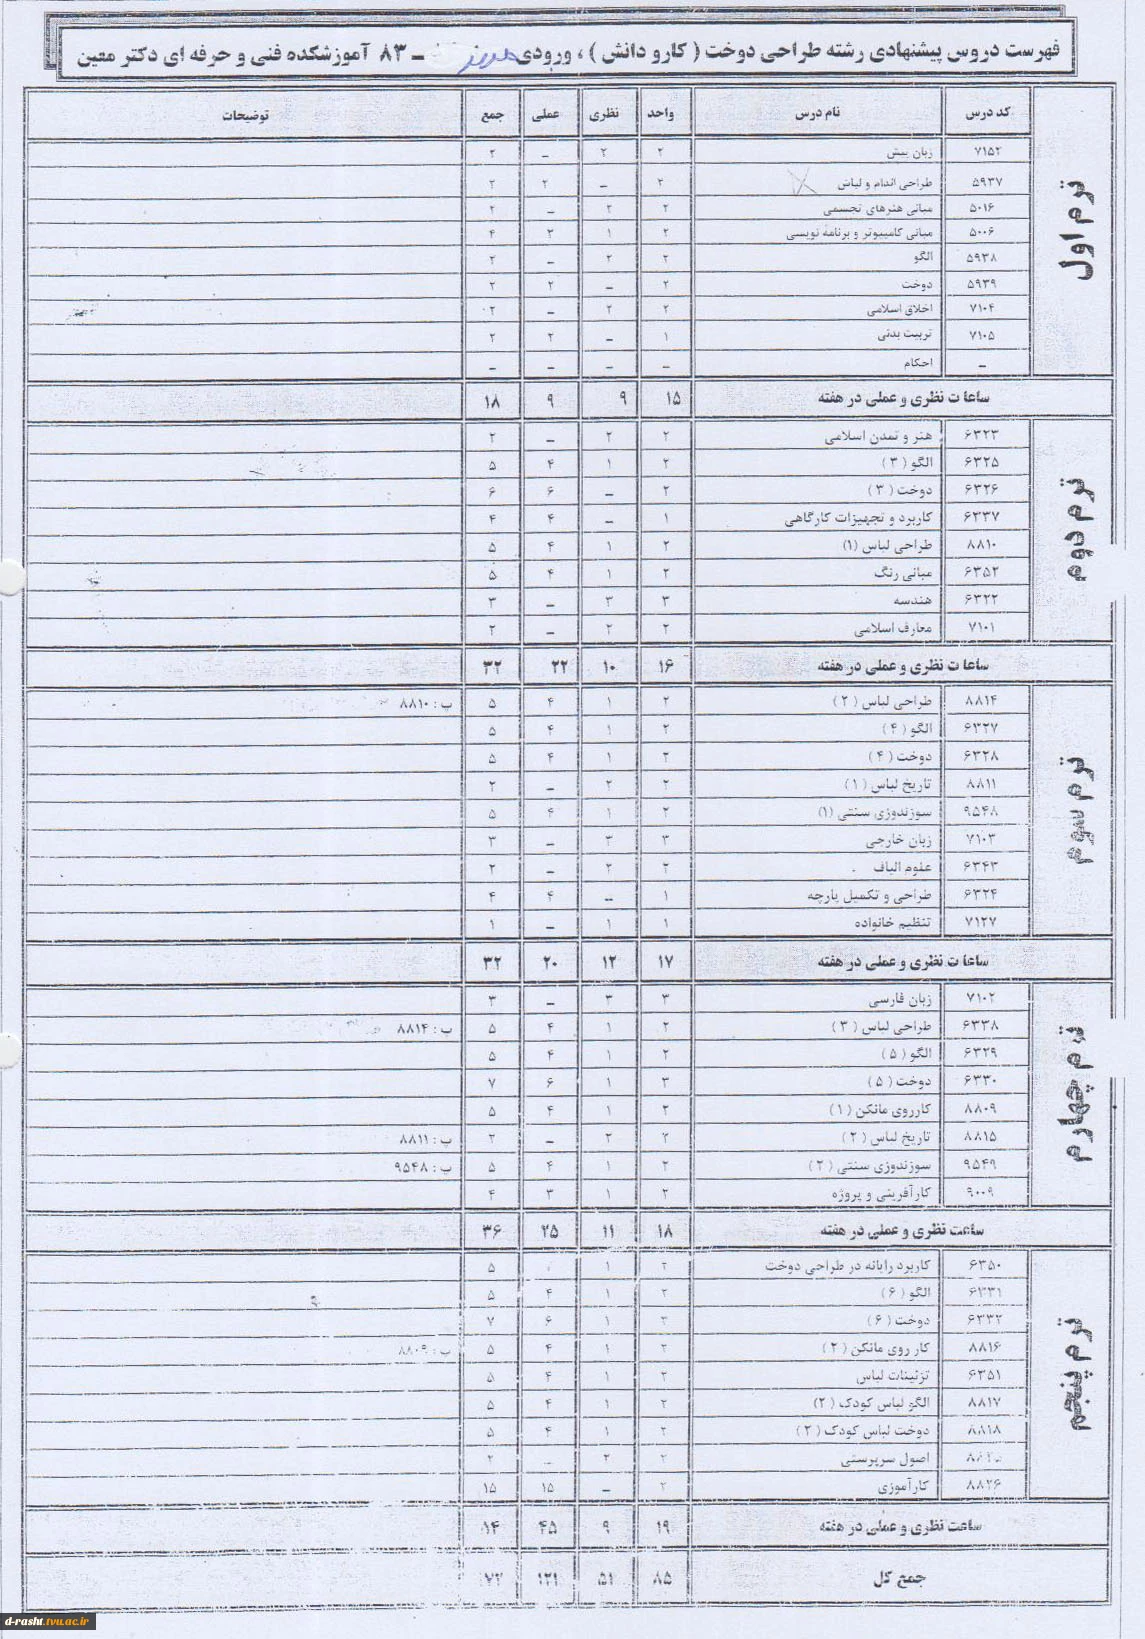 فهرست دروس پیشنهادی رشته طراحی دوخت ( کارو دانش ) ، ورودی ـ ۸۳ آموزشکده فنی و حرفه ای دکتر معین
کد درس نام درس واحد نظری عملی جمع توضیحات
ترم اول
۷۱۵۲ زبان پیش ۲ ۲ – ۲
۵۹۳۷ طراحی اندام و لباس ۲ – ۲ ۲
۵۰۱۶ مبانی هنرهای تجسمی ۲ ۲ – ۲
۵۰۰۶ مبانی کامپیوتر و برنامه نویسی ۲ ۱ ۳ ۴
۵۹۳۸ الگو ۲ ۲ – ۲
۵۹۳۹ دوخت ۲ – ۲ ۲
۷۱۰۴ اخلاق اسلامی ۲ ۲ – ۲
۷۱۰۵ تربیت بدنی ۱ – ۲ ۲
– احکام – – – –
ساعات نظری و عملی در هفته ۱۵ ۹ ۹ ۱۸
ترم دوم
۶۳۲۳ هنر و تمدن اسلامی ۲ ۲ – ۲
۶۳۲۵ الگو ( ۳ ) ۲ ۱ ۴ ۵
۶۳۲۶ دوخت ( ۳ ) ۲ – ۶ ۶
۶۳۳۷ کاربرد و تجهیزات کارگاهی ۱ – ۴ ۴
۸۸۱۰ طراحی لباس (۱) ۲ ۱ ۴ ۵
۶۳۵۲ مبانی رنگ ۲ ۱ ۴ ۵
۶۳۲۲ هندسه ۳ ۳ – ۳
۷۱۰۱ معارف اسلامی ۲ ۲ – ۲
ساعات نظری و عملی در هفته ۱۶ ۱۰ ۲۲ ۳۲
ترم سوم
۸۸۱۴ طراحی لباس ( ۲ ) ۲ ۱ ۴ ۵ پ : ۸۸۱۰
۶۳۲۷ الگو ( ۴ ) ۲ ۱ ۴ ۵
۶۳۲۸ دوخت ( ۴ ) ۲ ۱ ۴ ۵
۸۸۱۱ تاریخ لباس ( ۱ ) ۲ ۲ – ۲
۹۵۴۸ سوزندوزی سنتی (۱) ۲ ۱ ۴ ۵
۷۱۰۳ زبان خارجی ۳ ۳ – ۳
۶۳۴۳ علوم الیاف ۲ ۲ – ۲
۶۳۲۴ طراحی و تکمیل پارچه ۱ – ۴ ۴
۷۱۲۷ تنظیم خانواده ۱ ۱ – ۱
ساعات نظری و عملی در هفته ۱۷ ۱۲ ۲۰ ۳۲
ترم چهارم
۷۱۰۲ زبان فارسی ۳ ۳ – ۳
۶۳۳۸ طراحی لباس ( ۳ ) ۲ ۱ ۴ ۵ پ : ۸۸۱۴
۶۳۲۹ الگو ( ۵ ) ۲ ۱ ۴ ۵
۶۳۳۰ دوخت ( ۵ ) ۳ ۱ ۶ ۷
۸۸۰۹ کارروی مانکن ( ۱ ) ۲ ۱ ۴ ۵
۸۸۱۵ تاریخ لباس ( ۲ ) ۲ ۲ – ۲ پ : ۸۸۱۱
۹۵۴۹ سوزندوزی سنتی ( ۲ ) ۲ ۱ ۴ ۵ پ : ۹۵۴۸
۹۰۰۹ کارآفرینی و پروژه ۲ ۱ ۳ ۴
ساعت نظری و عملی در هفته ۱۸ ۱۱ ۲۵ ۳۶
ترم پنجم
۶۳۵۰ کاربرد رایانه در طراحی دوخت ۲ ۱ ۵
۶۳۳۱ الگو ( ۶ ) ۲ ۱ ۴ ۵
۶۳۳۲ دوخت ( ۶ ) ۳ ۱ ۶ ۷
۸۸۱۶ کار روی مانکن ( ۲ ) ۲ ۱ ۴ ۵ پ : ۸۸۰۹
۶۳۵۱ تزئینات لباس ۲ ۱ ۴ ۵
۸۸۱۷ الگو لباس کودک ( ۲ ) ۲ ۱ ۴ ۵
۸۸۱۸ دوخت لباس کودک ( ۲ ) ۲ ۱ ۴ ۵
اصول سرپرستی ۲ ۲ – ۲
۸۸۲۶ کارآموزی ۲ – ۱۵ ۱۵
ساعت نظری و عملی در هفته ۱۹ ۹ ۴۵
جمع کل ۸۵ ۵۱ ۱۲۱ ۷۲
d-rasht.tvu.ac.ir